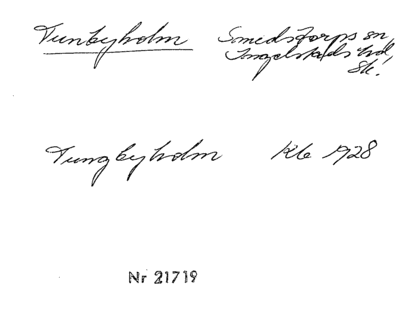 Tunbyholm Smedstorps sn,
Ingelstads hd,
Sk.
Tungbyholm Kb 1928
Nr 21719